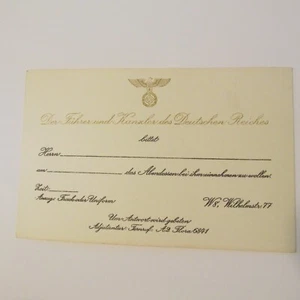 Der Führer und Kanzler des Deutschen Reiches
bittet
Herrn
am des Abendessen bei ihm einnehmen zu wollen.
Zeit:
Anzug: Frack oder Uniform W8, Wilhelmstr. 77
Um Antwort wird gebeten
Adjutantur Fernspr. A2 Flora 6841